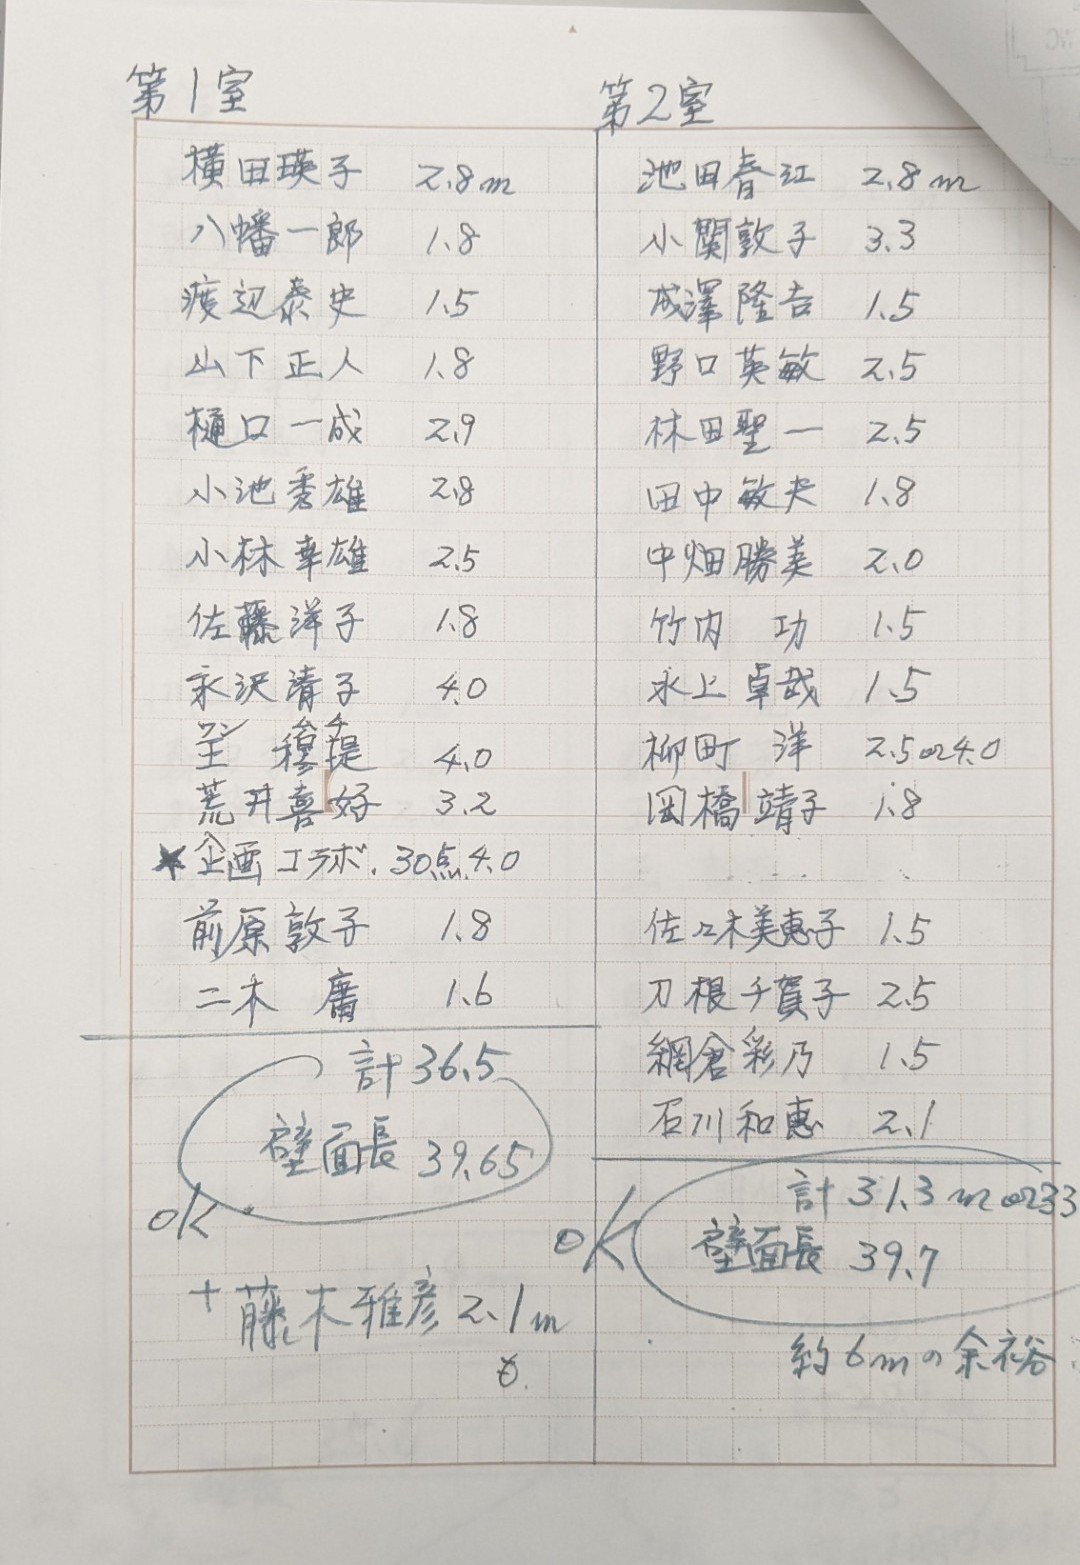 第1室
横田瑛子 2.8m
八幡一郎 1.8
渡辺泰史 1.5
山下正人 1.8
樋口一成 2.9
小池秀雄 2.8
小林幸雄 2.5
佐藤洋子 1.8
永沢清子 4.0
ワン ムチ
王 穆提 4.0
荒井喜好 3.2
★企画コラボ.30点.4.0
前原敦子 1.8
二木 庸 1.6
計 36.5
壁面長 39.65
OK.
+藤木雅彦 2.1m
第2室
池田春江 2.8m
小関敦子 3.3
成澤隆吉 1.5
野口英敏 2.5
林田聖一 2.5
田中敏夫 1.8
中畑勝美 2.0
竹内 功 1.5
永上卓哉 1.5
柳町 洋 2.5or4.0
岡橋靖子 1.8
佐々木美恵子 1.5
刀根千賀子 2.5
網倉彩乃 1.5
石川和恵 2.1
計 31.3m or 33
壁面長 39.7
OK
約6mの余裕